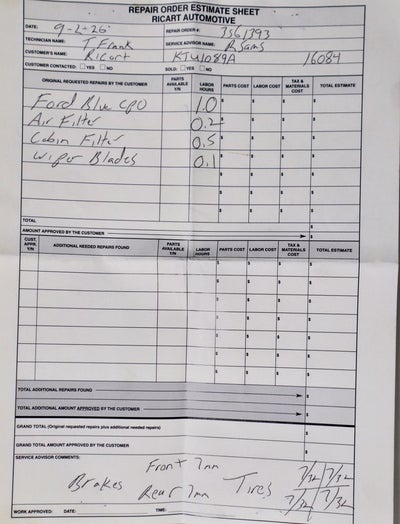 REPAIR ORDER ESTIMATE SHEET
RICART AUTOMOTIVE
DATE: 9-2-26 REPAIR ORDER #: 7361393
TECHNICIAN NAME: T. Frank SERVICE ADVISOR NAME: R Sams
CUSTOMER'S NAME: Ricart KTU1089A 16084
CUSTOMER CONTACTED: YES NO SOLD: YES NO
ORIGINAL REQUESTED REPAIRS BY THE CUSTOMER PARTS AVAILABLE Y/N LABOR HOURS PARTS COST LABOR COST TAX & MATERIALS COST TOTAL ESTIMATE
Ford Blue CPO 1.0 $ $ $ $
Air Filter 0.2 $ $ $ $
Cabin Filter 0.5 $ $ $ $
Wiper Blades 0.1 $ $ $ $
$ $ $ $
$ $ $ $
TOTAL $
AMOUNT APPROVED BY THE CUSTOMER $
CUST. APPR. Y/N ADDITIONAL NEEDED REPAIRS FOUND PARTS AVAILABLE Y/N LABOR HOURS PARTS COST LABOR COST TAX & MATERIALS COST TOTAL ESTIMATE
$ $ $ $
$ $ $ $
$ $ $ $
$ $ $ $
$ $ $ $
$ $ $ $
$ $ $ $
TOTAL ADDITIONAL REPAIRS FOUND $
TOTAL ADDITIONAL AMOUNT APPROVED BY THE CUSTOMER $
GRAND TOTAL (Original requested repairs plus additional needed repairs) $
GRAND TOTAL AMOUNT APPROVED BY THE CUSTOMER $
SERVICE ADVISOR COMMENTS:
Front 7mm 7/32 7/32
Brakes Rear 7mm Tires 7/32 7/32
WORK APPROVED: DATE: TIME: